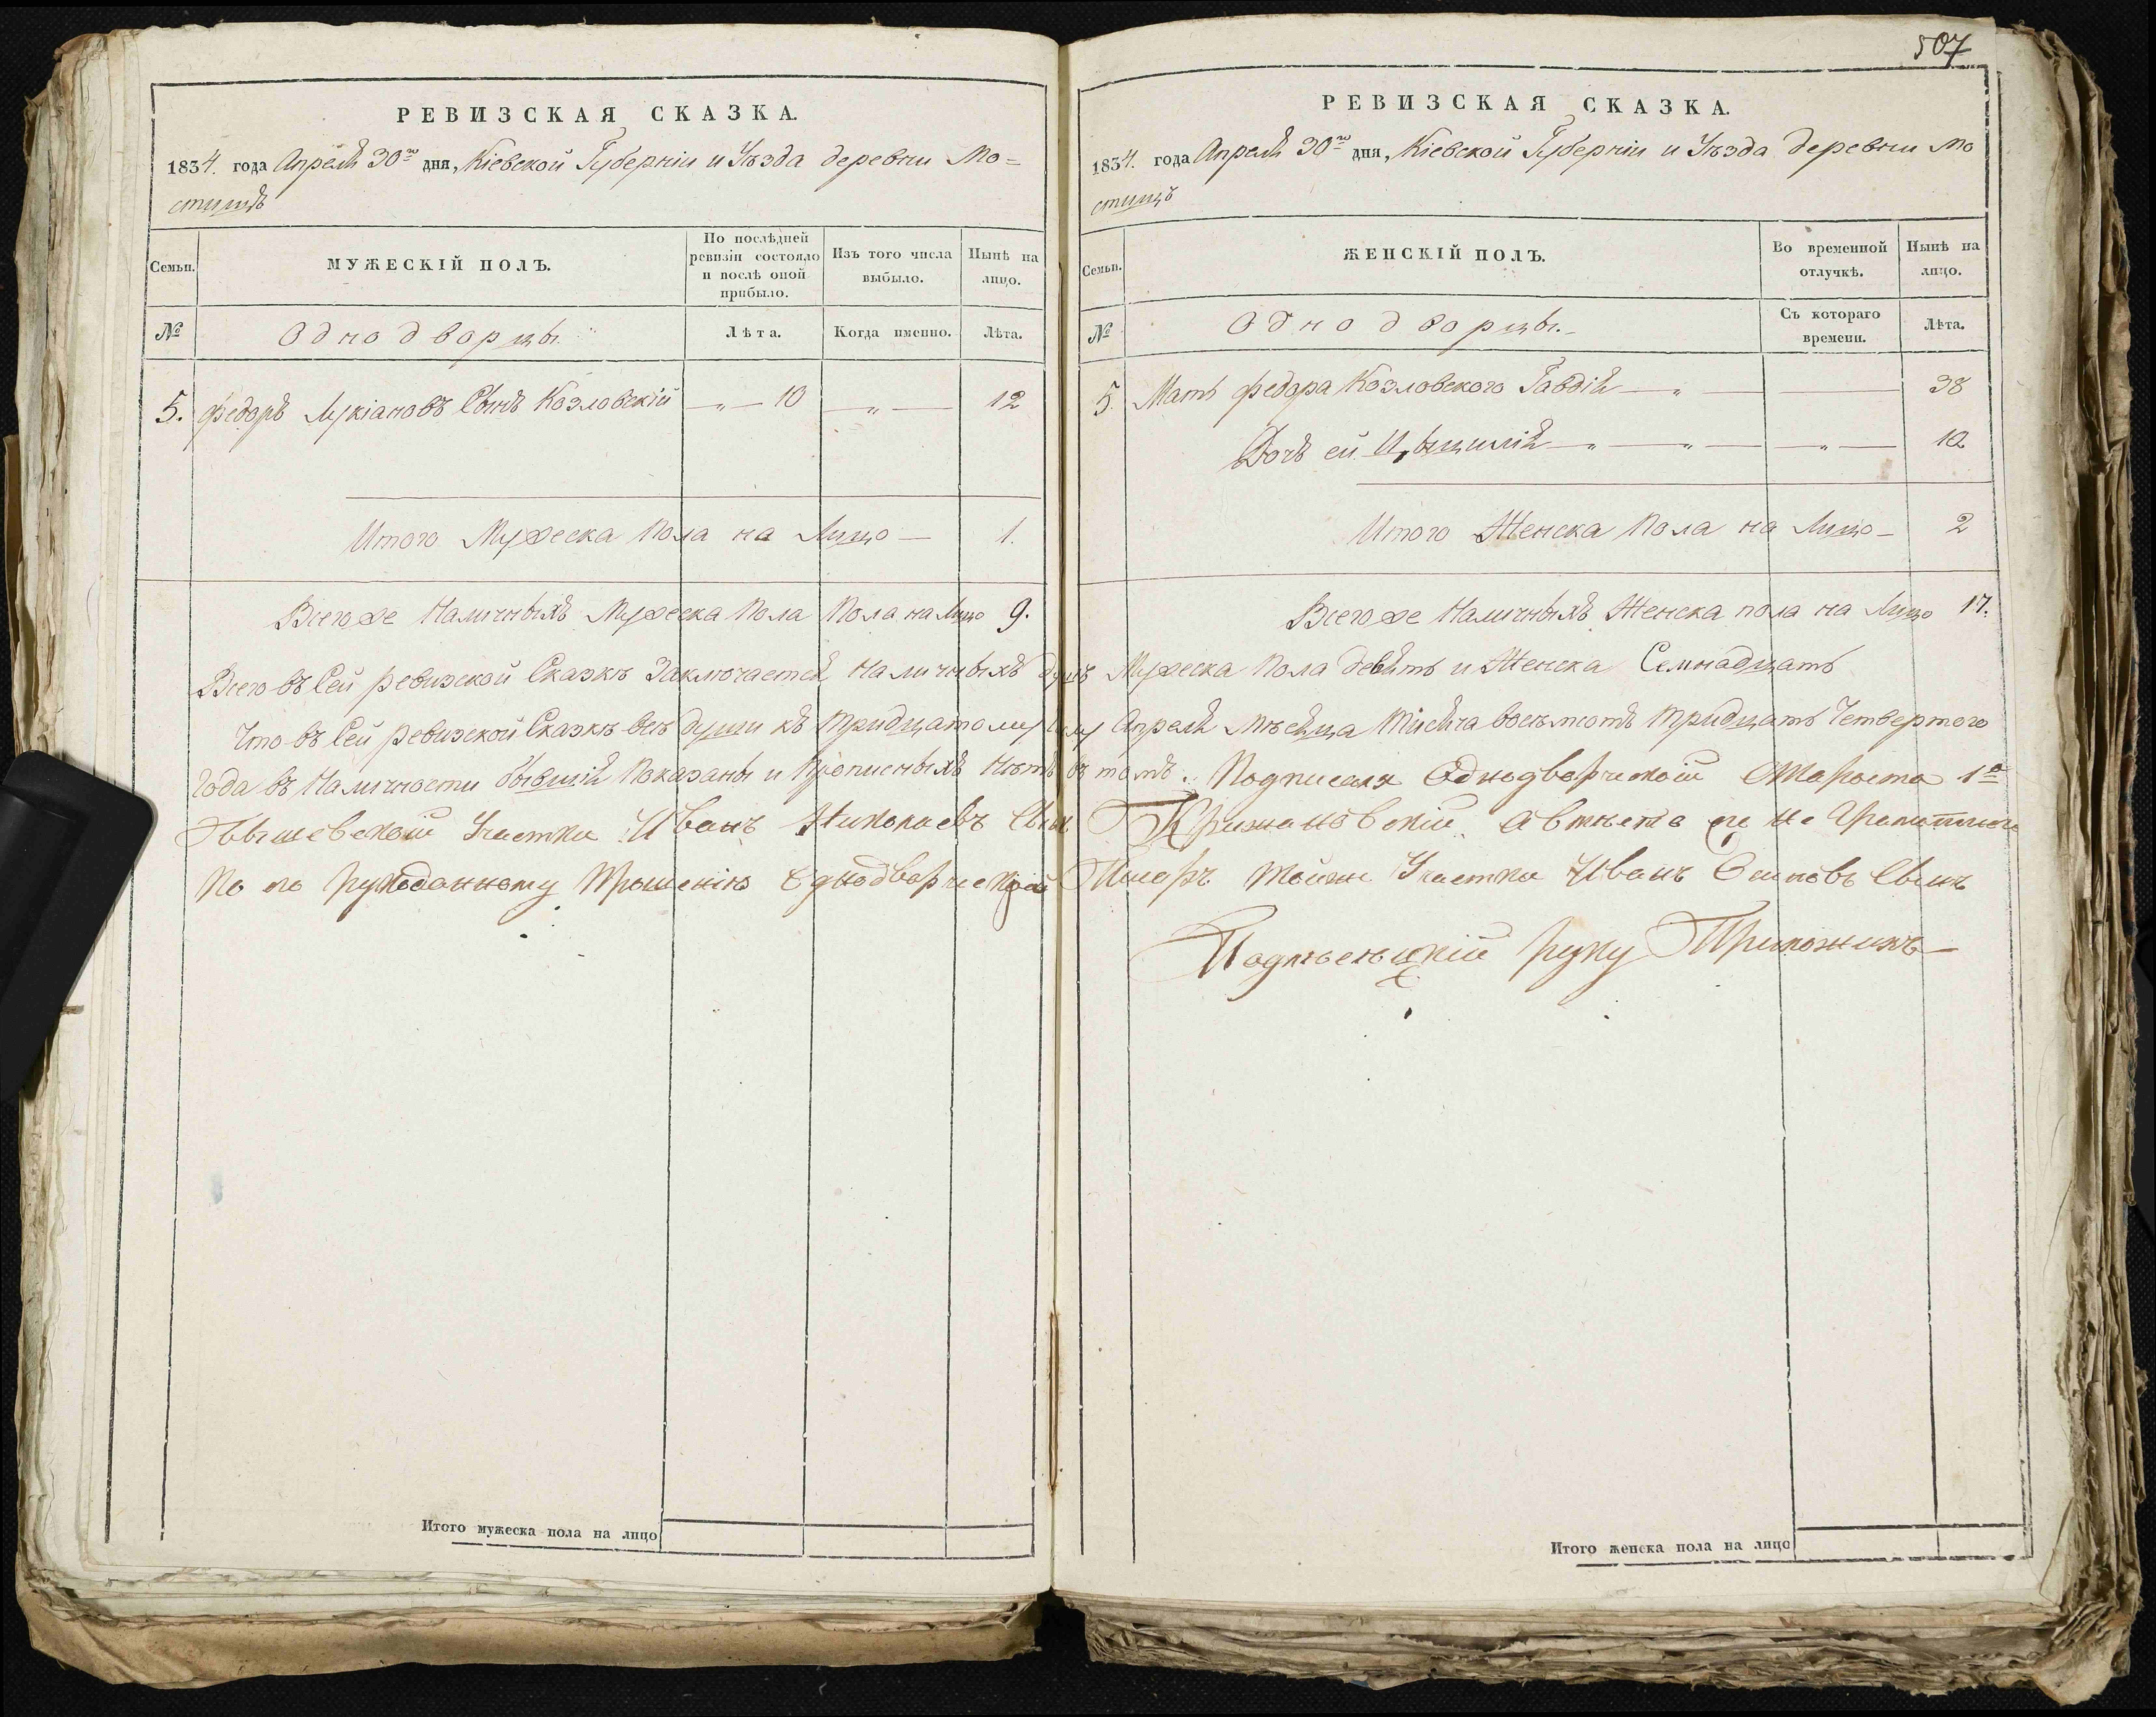 РЕВИЗСКАЯ СКАЗКА.
1834. года Апреля 30го дня, Кіевской Губерніи и Уѣзда деревни Мо=
стищъ
Семьи.
МУЖЕСКІЙ ПОЛЪ.
По послѣдней ревизіи состояло и послѣ оной прибыло.
Изъ того числа выбыло.
Нынѣ на лицо.
№
Однодворцы.
Лѣта.
Когда именно.
Лѣта.
5. Федоръ Лукіановъ Сынъ Козловскій — „ — 10 — „ — 12
Итого Мужеска Пола на Лицо — 1.
Всего же Наличныхъ Мужеска Пола Пола на Лицо 9.
507
РЕВИЗСКАЯ СКАЗКА.
1834. года Апреля 30го дня, Кіевской Губерніи и Уѣзда деревни Мо
стищъ
Семьи.
ЖЕНСКІЙ ПОЛЪ.
Во временной отлучкѣ.
Нынѣ на лицо.
№
Однодворцы.
Съ котораго времени.
Лѣта.
5. Мать Федора Козловского Гавдія — „ — — 38
Дочь ей — „ — „ — „ — 10
Итого Женска Пола на Лицо — 2
Всего же Наличныхъ Женска пола на Лицо 17.
Всего въ Сей ревизской Сказкѣ Заключается Наличныхъ душъ Мужеска Пола девять и Женска Семнадцать
Что въ Сей ревизской Сказкѣ всѣ души къ тридцатому Сему Апреля Мѣсяца Тисяча восемьсотъ тридцать Четвертого
Года въ Наличности бывшія Показаны и Прописныхъ Нѣтъ въ томъ. Подписался Однодворческій Староста 1о
Участка Иванъ Николаевъ Сынъ Крижановскій а вмѣсто его не Грамотного
По его рукоданному Прошенію Однодворческій Писарь Тойже Участка Иванъ Осиповъ Сынъ
руку Приложилъ
Итого мужеска пола на лицо
Итого женска пола на лицо